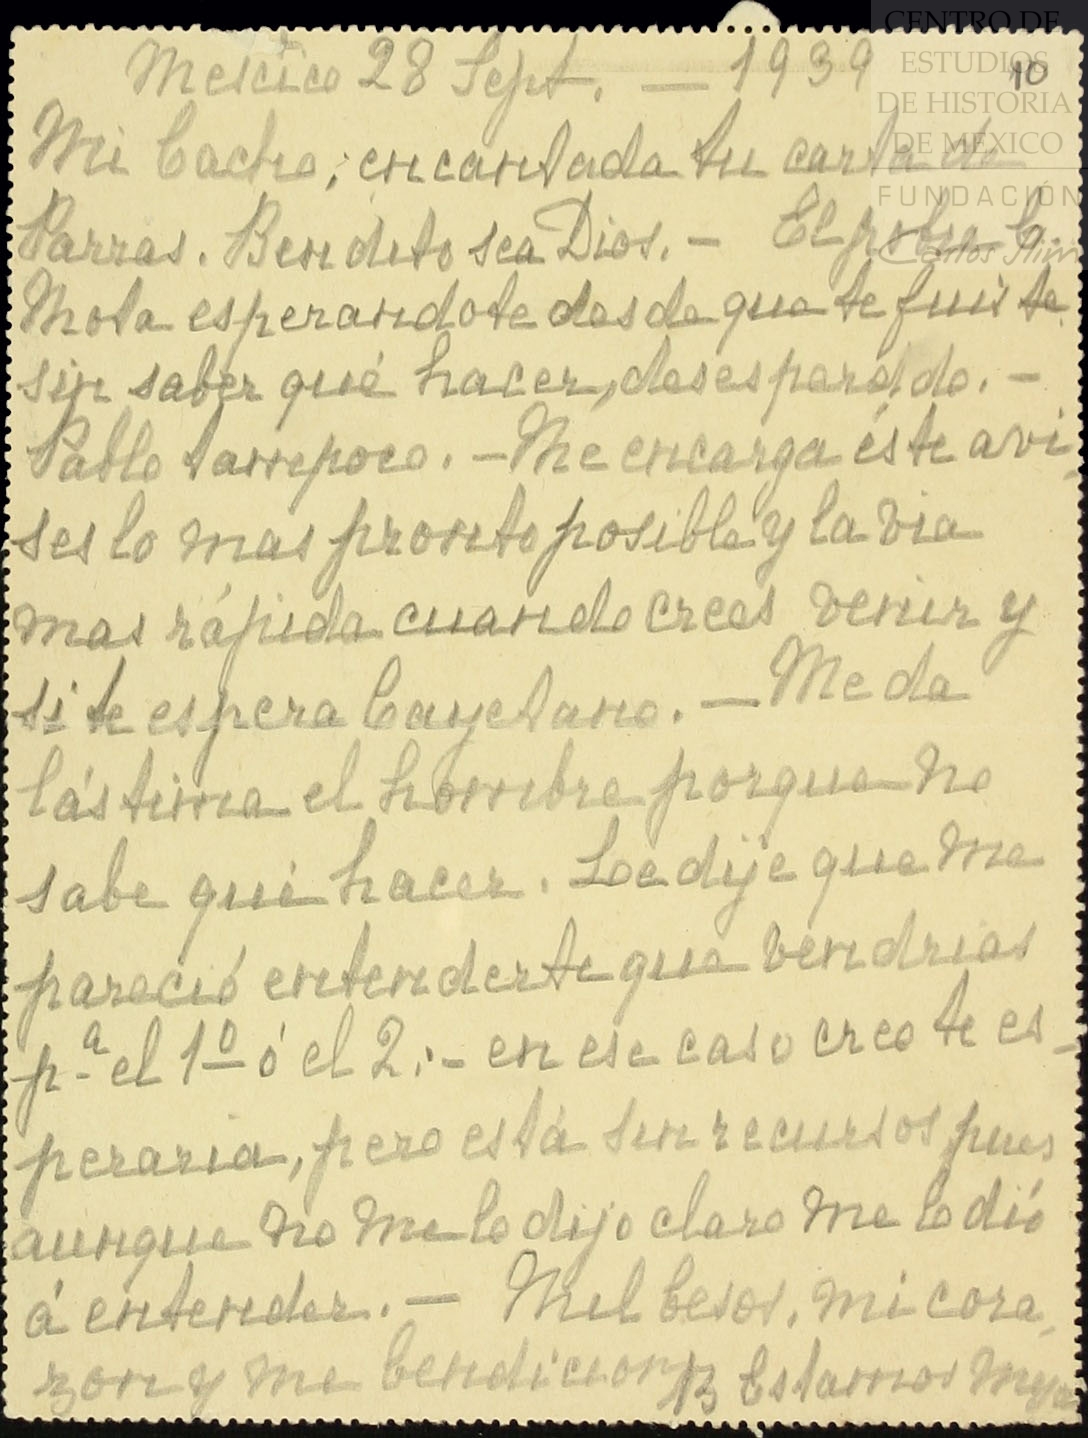 CENTRO DE
ESTUDIOS
DE HISTORIA
DE MÉXICO
FUNDACIÓN
Carlos Slim
10
Mexico 28 Sept. — 1939
Mi Cacho; encantada tu carta de
Parras. Bendito sea Dios. — El pobre C.
Mota esperandote desde que te fuiste
sin saber qué hacer, desesperado. —
Pablo tampoco. — Me encarga éste avi-
ses lo mas pronto posible y la via
mas rápida cuando crees venir y
si te espera Cayetano. — Me da
lástima el hombre porque no
sabe qué hacer. Le dije que me
pareció entenderte que vendrias
pª el 1º ó el 2.- en ese caso creo te es-
peraria, pero está sin recursos pues
aunque no me lo dijo claro me lo dió
á entender. — Mil besos, mi cora-
zon y me bendicion Estamos